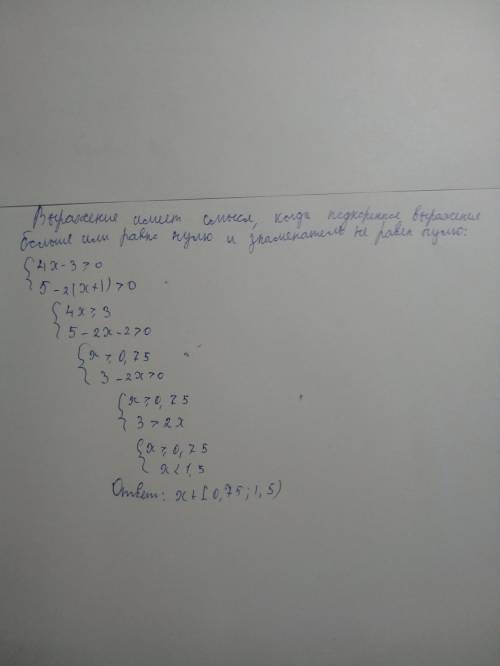 Выражение имеет смысл, когда подкоренное выражение
больше или равно нулю и знаменатель не равен нулю:
4x-3≥0
5-2(x+1)>0
4x≥3
5-2x-2>0
x≥0,75
3-2x>0
x≥0,75
3>2x
x≥0,75
x<1,5
Ответ: x∈[0,75;1,5)